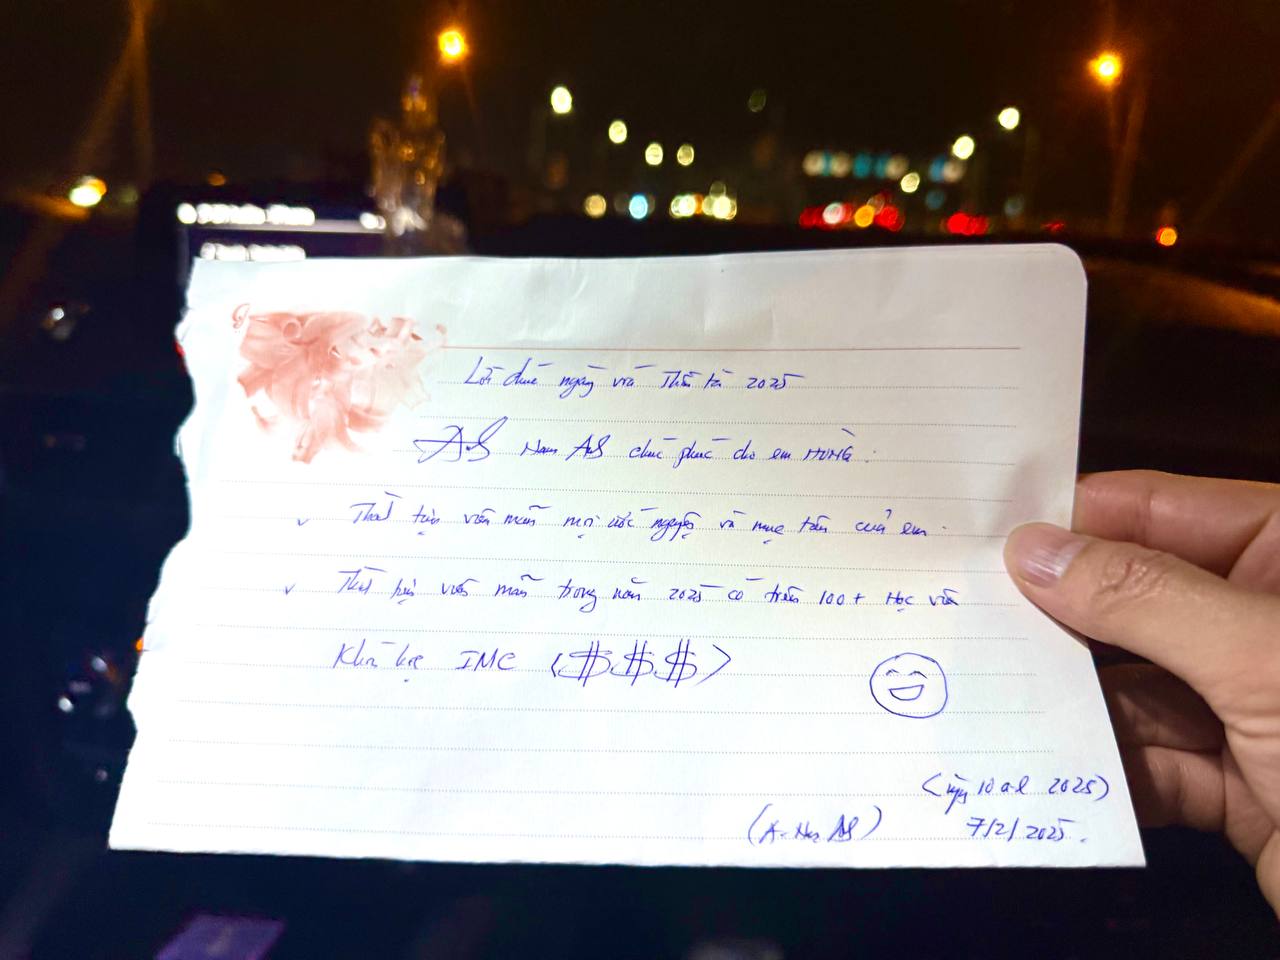 Lời chúc ngày vía Thần tài 2025
Nam AS chúc phúc cho em HÙNG:
✓ Thật hiện viên mãn mọi ước nguyện và mục tiêu của em.
✓ Thật hiện viên mãn trong năm 2025 có trên 100+ Học viên
IMC ($$$)
(ngày 10 a-l 2025)
7/2/2025.